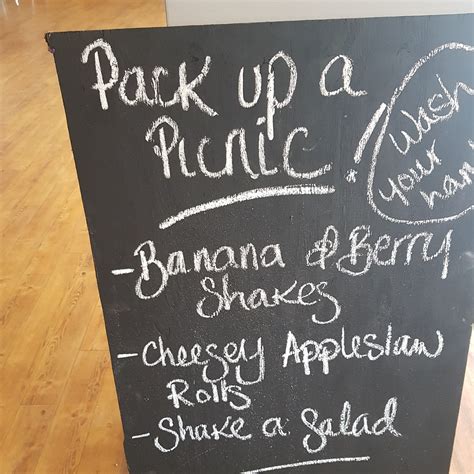 Pack up a
Picnic!
Wash
your
- Banana & Berry
Shakes
- Cheesey Appleslaw
Rolls
- Shake a Salad